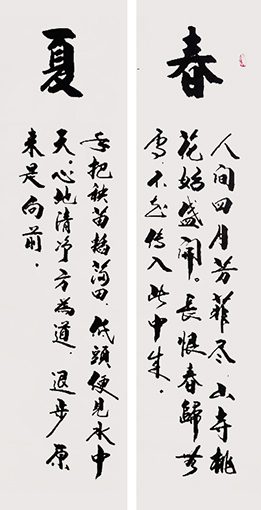 春
人间四月芳菲尽.山寺桃
花始盛開。長恨春歸無
不知转入此中来.
夏
手把秧苗插滿田.低頭便見水中
天.心地清净方為道.退步原
来是向前.